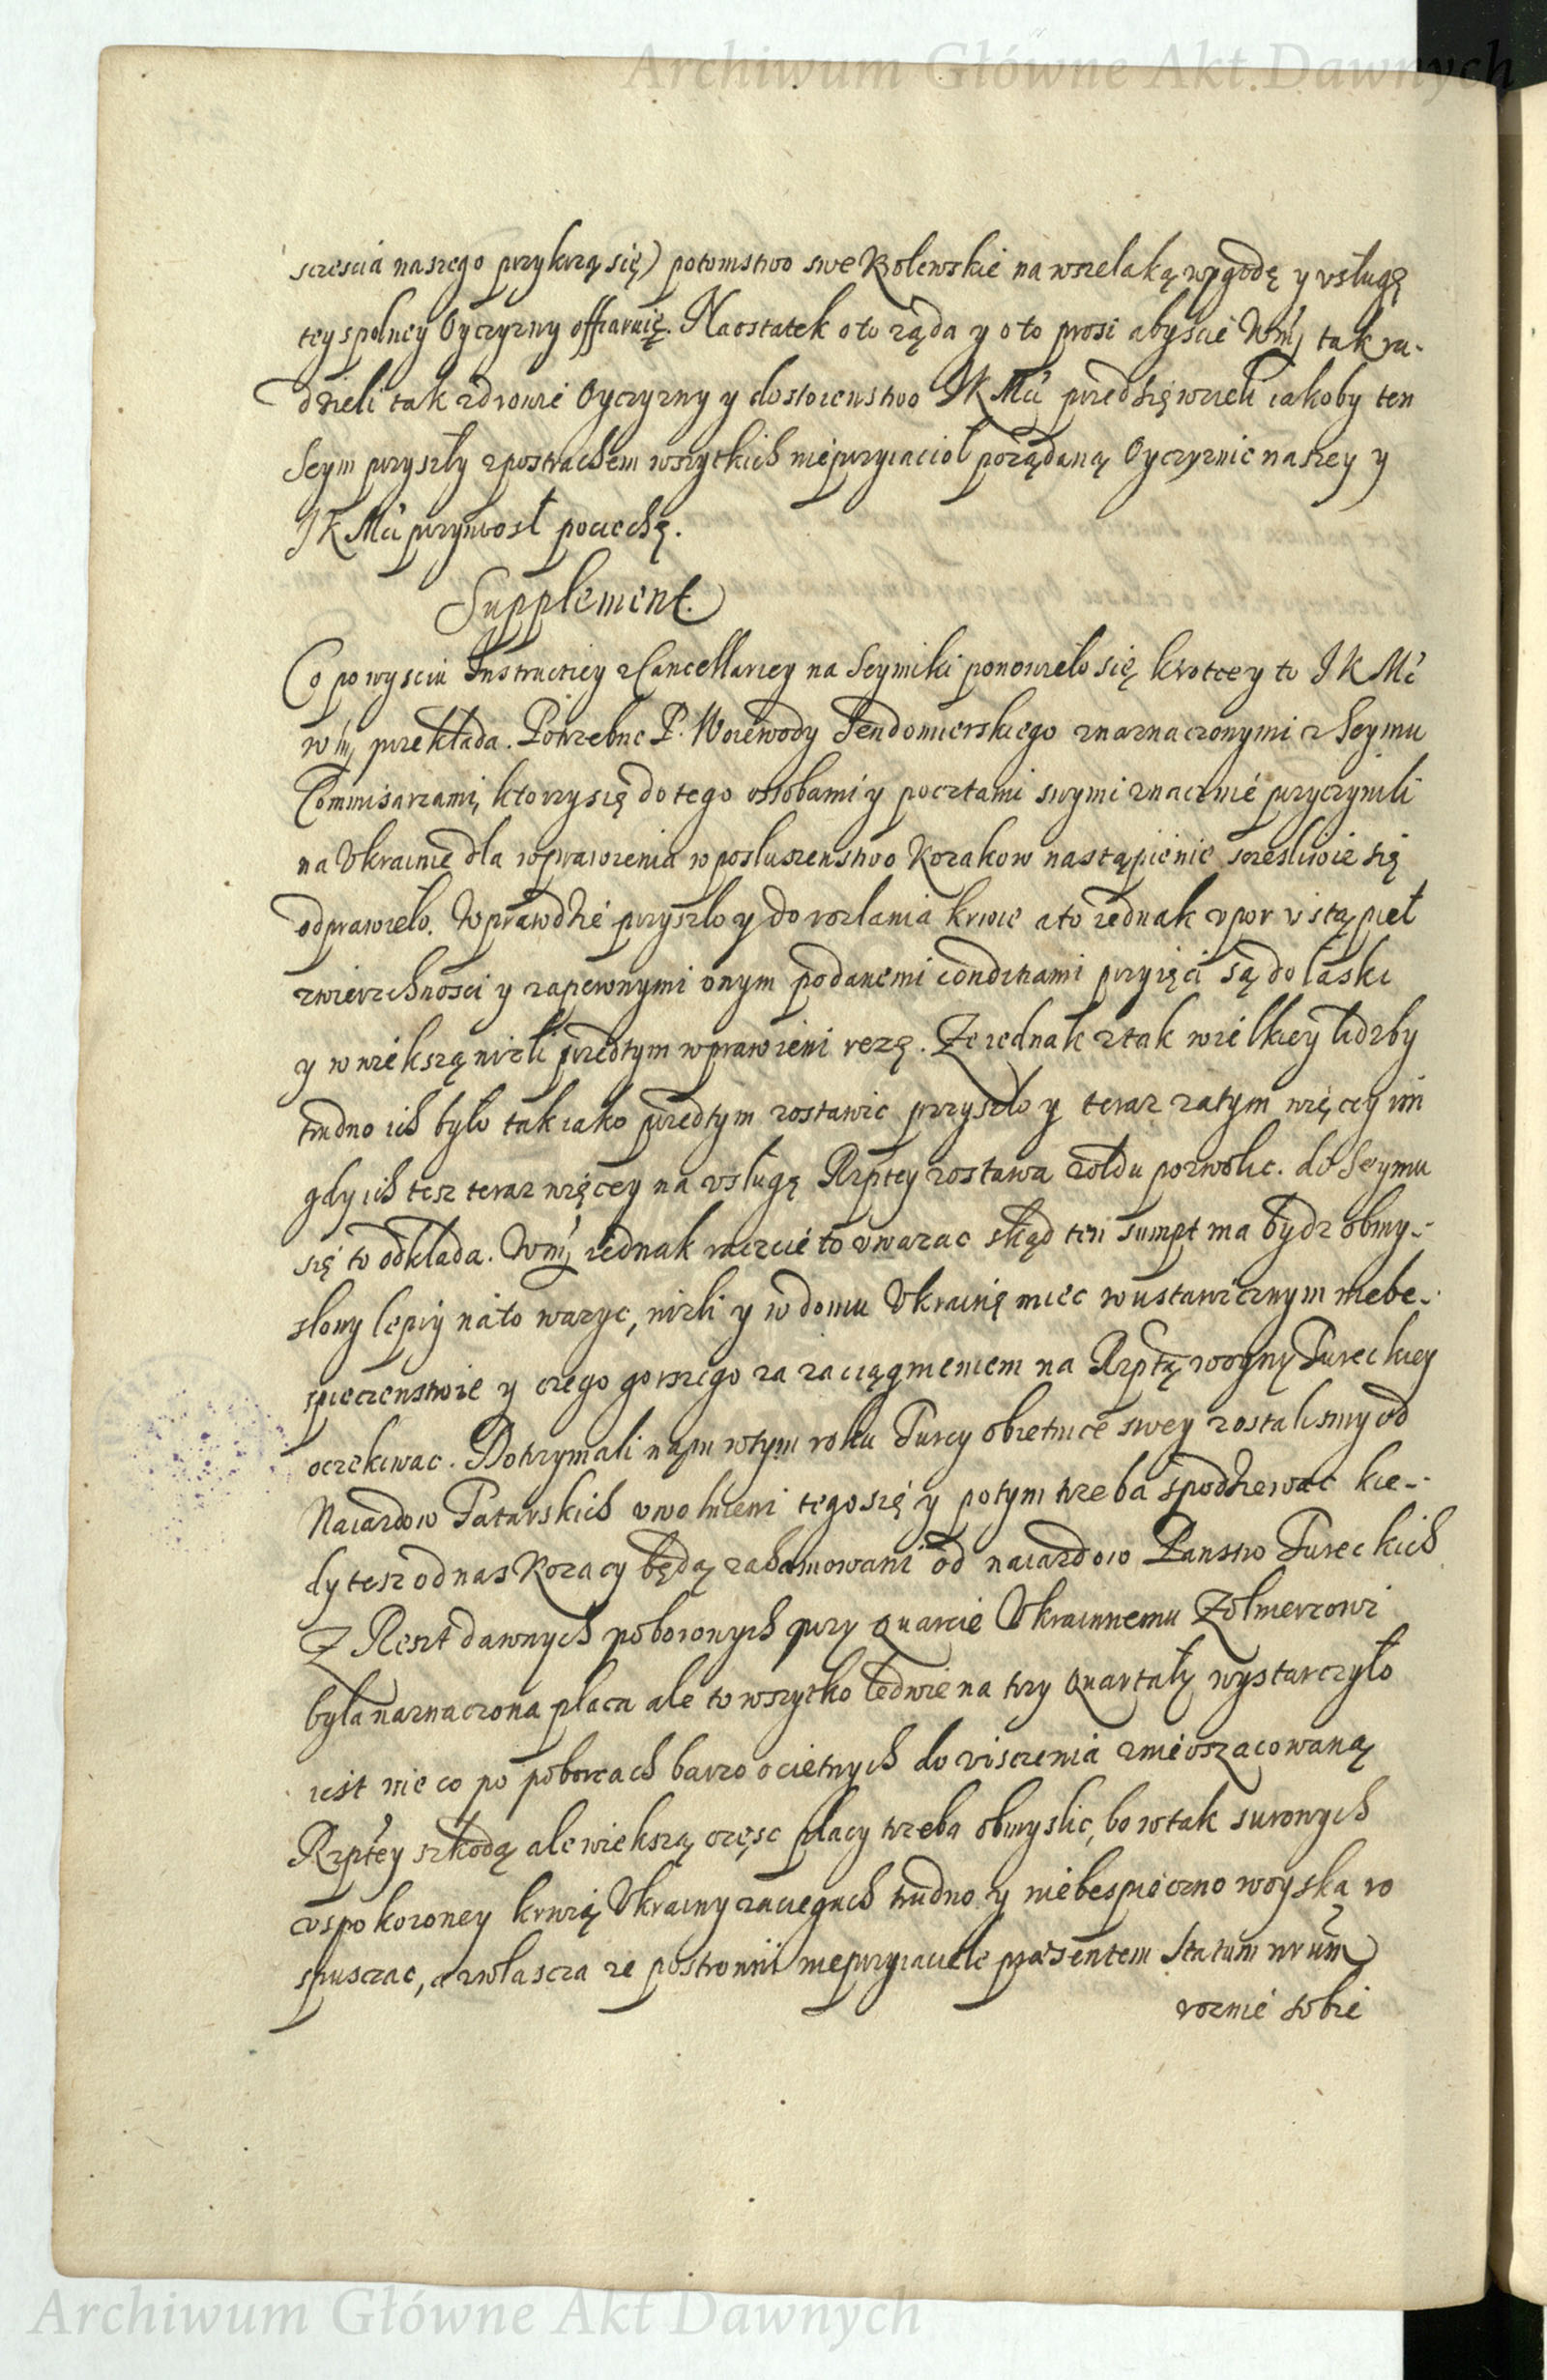 Archiwum Główne Akt Dawnych
scescia naszego przykrzą się) potomstwo swe Kolewskie na wszelaką wygodę y vsługę
tey spolney Oyczyzny offiaruię. Naostatek oto ząda y oto prosi abyscie Wmj tak ra-
dzieli tak zdrowie Oyczyzny y dostoienstwo JK Mci przedsięwzieli iakoby ten
Seym przyszły zpostrachem wszytkich nieprzyiacioł poządaną Oyczyznie naszey y
JK Mci przyniosł pociechę.
Supplement.
Co po wysciu Instructiey z Cancellariey na Seymiki ponowieło się krotce y to JK Mć
Wmj przekłada. Potrzebne P. Woiewody Sendomierskiego znaznaczonymi z Seymu
Commisarzami, ktorzy się do tego ossobami y pocztami swymi znacznie przyczynili
na Vkrainię dla wprawienia w posłuszenstwo Kozakow nastąpienie sczesliwie się
odprawieło. Wprawdzie przyszło y do rozlania krwie ato iednak vpor vstąpieł
zwierzchnosci y zapewnymi onym podanemi conditiami przyięci są do łaski
y w wiekszą nizli przedtym wprawieni rezę. Ze iednak ztak wielkiey lidzby
trudno ich było tak iako przedtym zostawic przyszło y teraz zatym więcey im
gdy ich tesz teraz więcey na vsługę Rzptey zostawa zołdu pozwolic. do Seymu
się to odkłada. Wmj iednak raczcie to vwazac skąd ten sumpt ma bydz obmy-
slony lepiy nato wazyc, nizli y w domu Vkrainę miec wustawicznym niebe-
spieczenstwie y czego gorszego za zaciągnieniem na Rzptą woyny Tureckiey
oczekiwac. Dotrzymali nam wtym roku Turcy obietnice swey zostalismy od
Naiazdow Tatarskich vwolnieni tego się y potym trzeba spodziewac kie-
dy tesz od nas Kozacy będą zahamowani od naiazdow Panstw Tureckich
Z Reszt dawnych poborowych przy Quarcie Vkrainnemu Zołnierzowi
była naznaczona płaca ale to wszytko ledwie na trzy Quartały wystarczyło
iest nieco po poborcach barzo ocietnych do visczenia znieoszacowaną
Rzptey szkodą ale wiekszą częsc płacy trzeba obmyslic, bo wtak surowych
vspokoioney krwią Vkrainy zaciegach trudno y niebespieczno woyska ro
spusczac, a zwłascza ze postronni nieprzyiaciele præsentem statum nrum
roznie sobie
Archiwum Główne Akt Dawnych